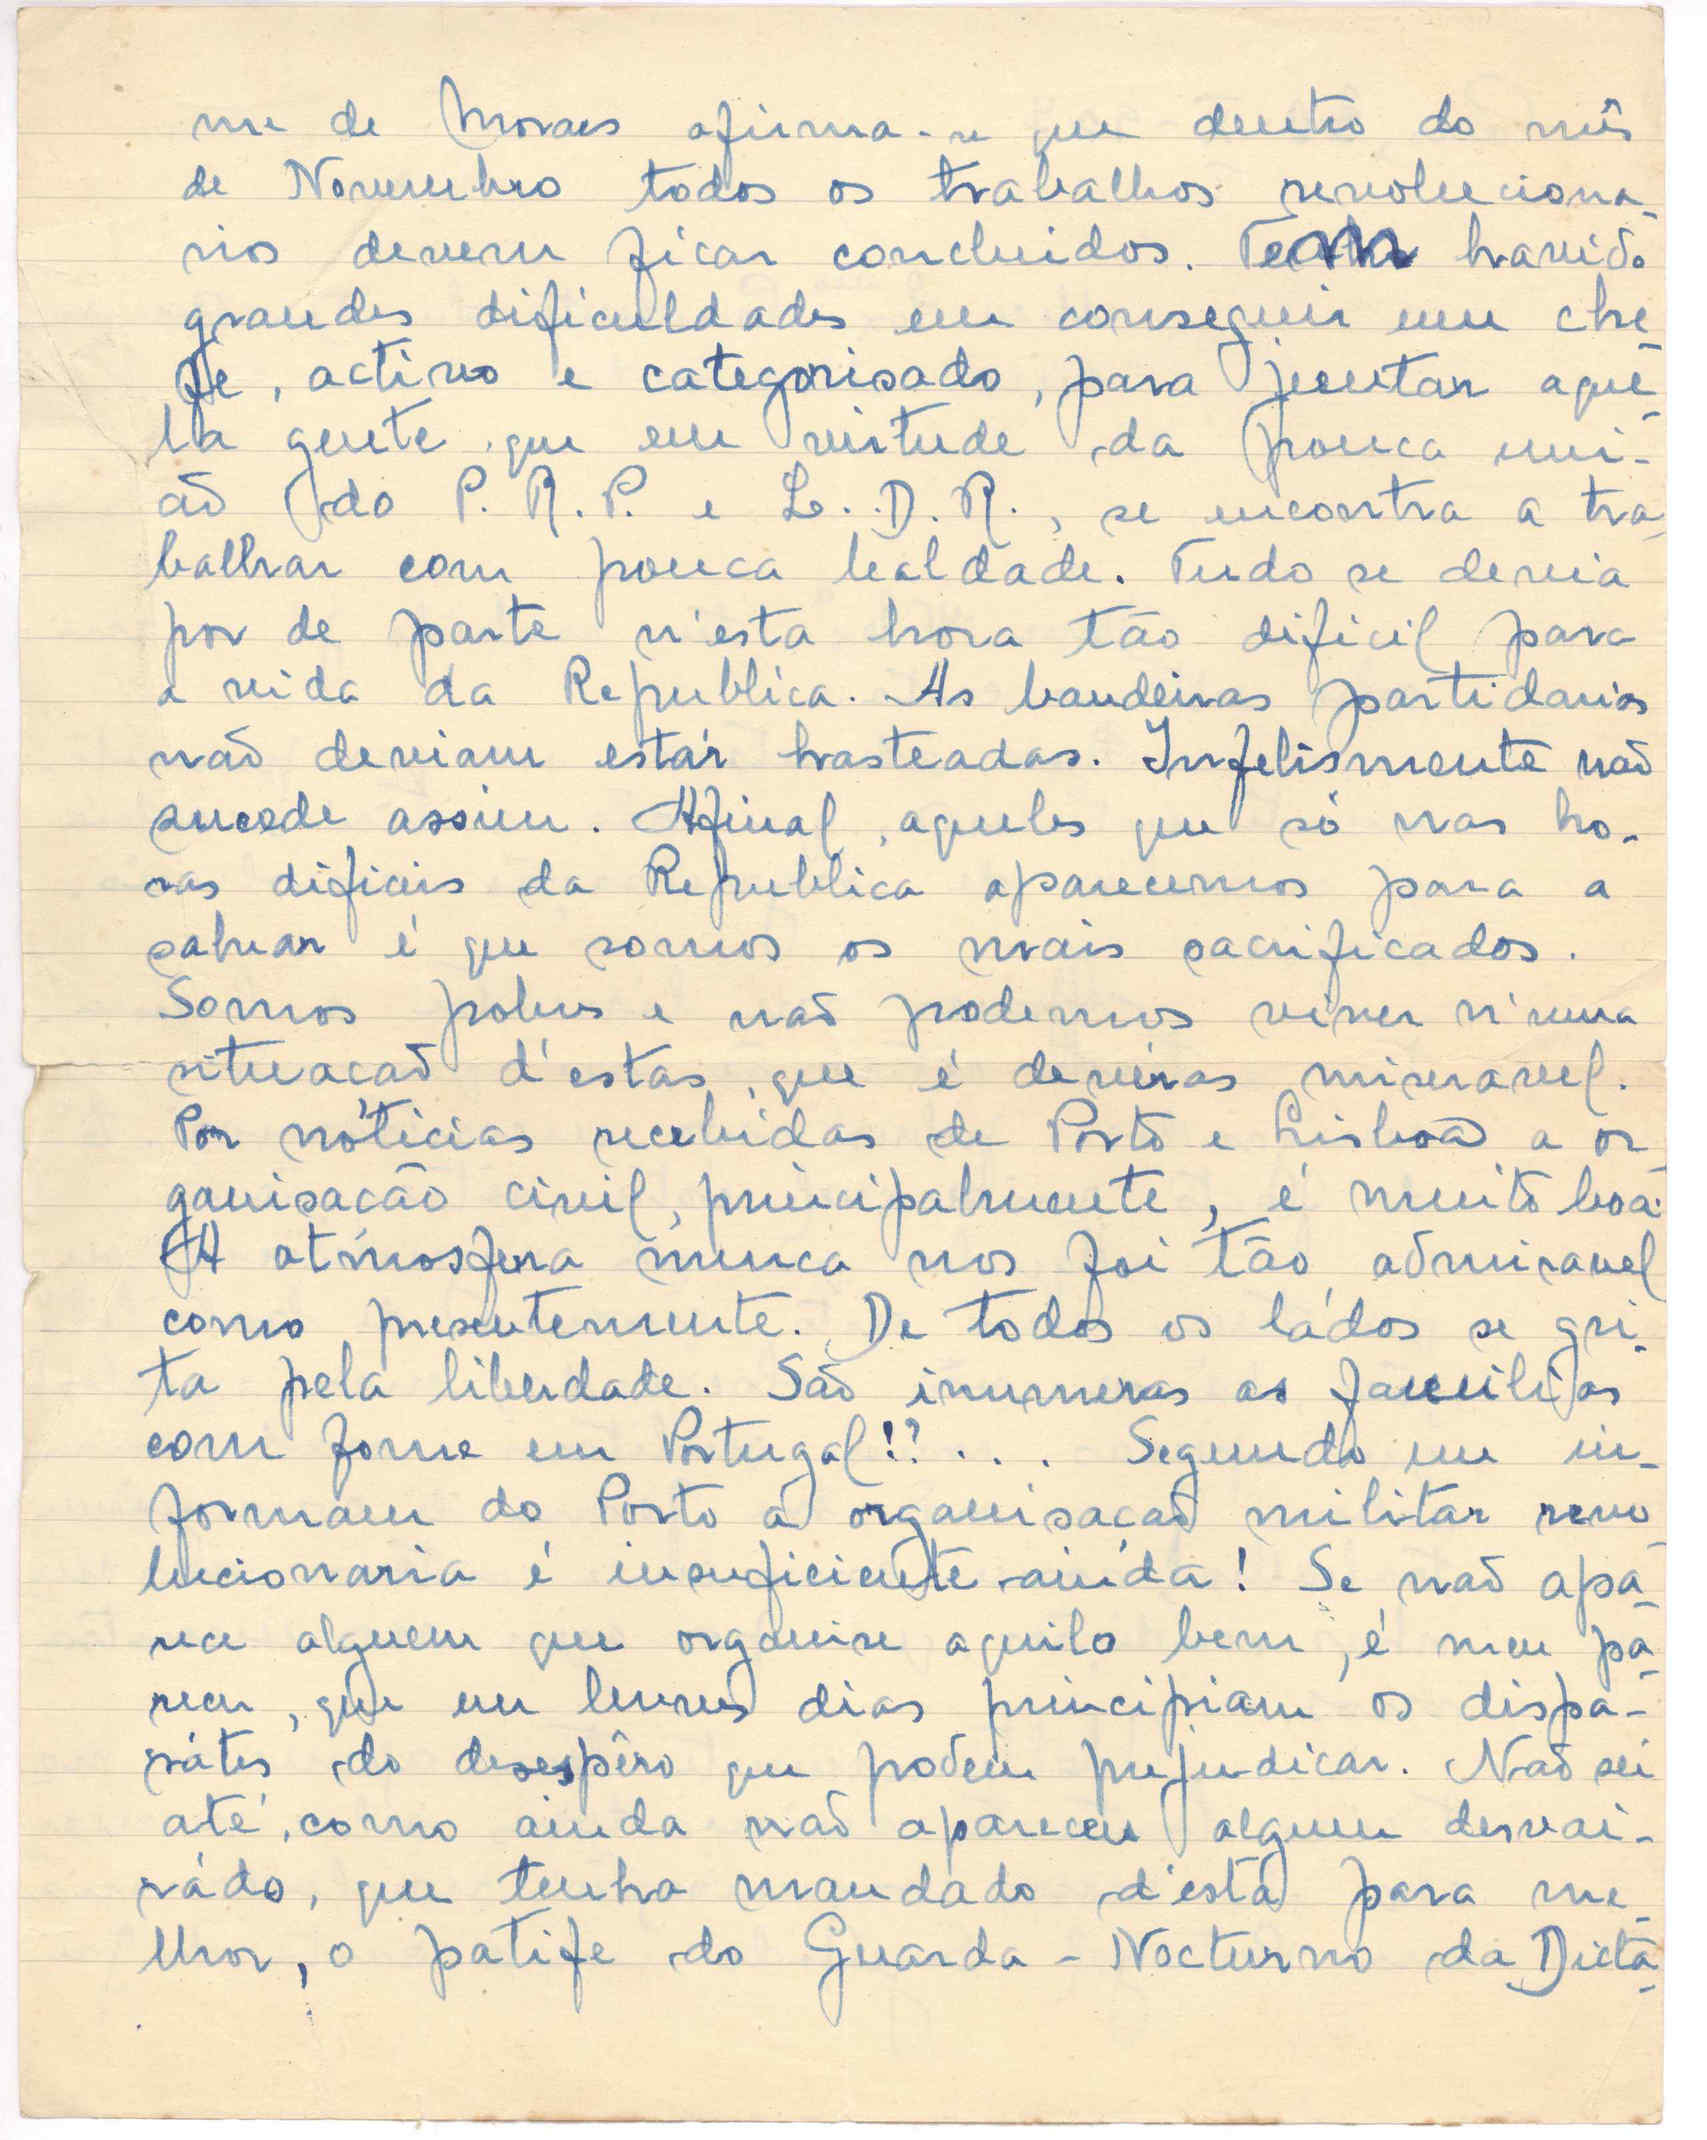 me de Moraes afirma-se que dentro do mês
de Novembro todos os trabalhos revoluciona-
rios devem ficar concluidos. Tem havido
grandes dificuldades em conseguir um che-
fe, activo e categorisado, para juntar aque-
la gente que em virtude da pouca uni-
aõ do P. R. P. e L. D. R., se encontra a tra-
balhar com pouca lealdade. Tudo se devia
por de parte n'esta hora tão dificil para
a vida da Republica. As bandeiras partidarias
naõ deviam estár hasteadas. Infelismente naõ
sucede assim. Afinal, aqueles que só nas ho-
ras dificeis da Republica aparecemos para a
salvar é que somos os mais sacrificados.
Somos pobres e naõ podemos viver n'uma
situacaõ d'estas, que é devéras miseravel.
Por nóticias recebidas de Porto e Lisboa a or-
ganisacão civil, principalmente, é muito boa.
A atmosfera nunca nos foi tão admiravel
como presentemente. De todos os ládos se gri-
ta pela liberdade. Saõ inumeras as familias
com fome em Portugal!?... Segundo me in-
formam do Porto a organisaçaõ militar revo-
lucionaria é insuficiente ainda! Se naõ apa-
rece alguem que organise aquilo bem, é meu pa-
recer, que em breves dias principiam os dispa-
rátes do desespêro que podem prejudicar. Naõ sei
até, como ainda naõ apareceu algum desvai-
rádo, que tenha mandado d'esta para me-
lhor, o patife do Guarda-Nocturno da Dicta-